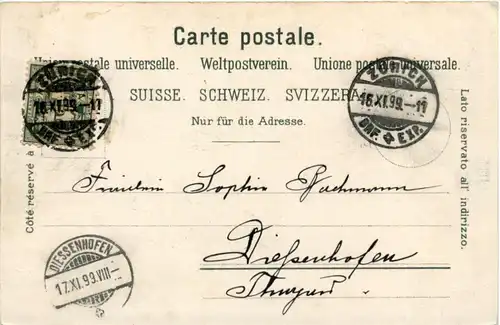 Carte postale.
Union postale universelle. Weltpostverein. Unione postale universale.
SUISSE. SCHWEIZ. SVIZZERA.
Nur für die Adresse.
ZÜRICH
16.XI.99.-11
BRF. EXP.
ZÜRICH
16.XI.99.-11
BRF. EXP.
Côté réservé à
Lato riservato all' indirizzo.
Fräulein Sophie Bachmann
Diessenhofen
Thurgau
DIESSENHOFEN
17.XI.99.VIII-